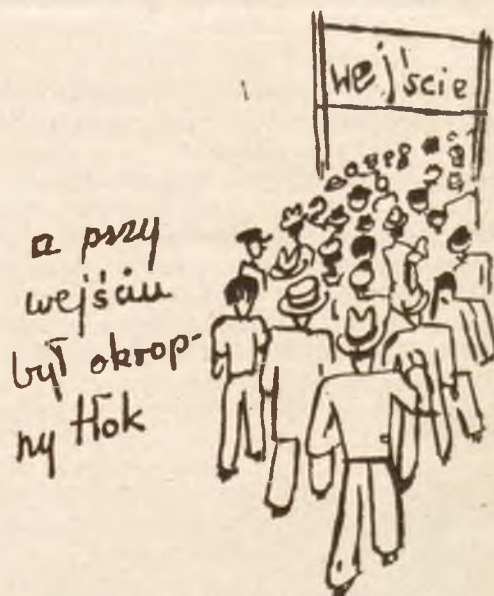 wejście
a przy
wejściu
był okrop-
ny tłok